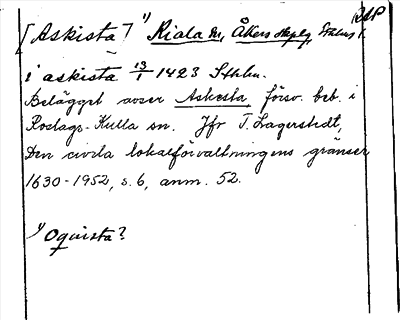 DSP
[Askista] 1) Riala sn, Åkers skplg, Sthlms l.
i askista 13/1 1423 Sthlm.
Belägget avser Askesta försv. beb. i
Roslags-Kulla sn. Jfr T. Lagerstedt,
Den civila lokalförvaltningens gränser
1630-1952, s. 6, anm. 52.
1) Oquista?